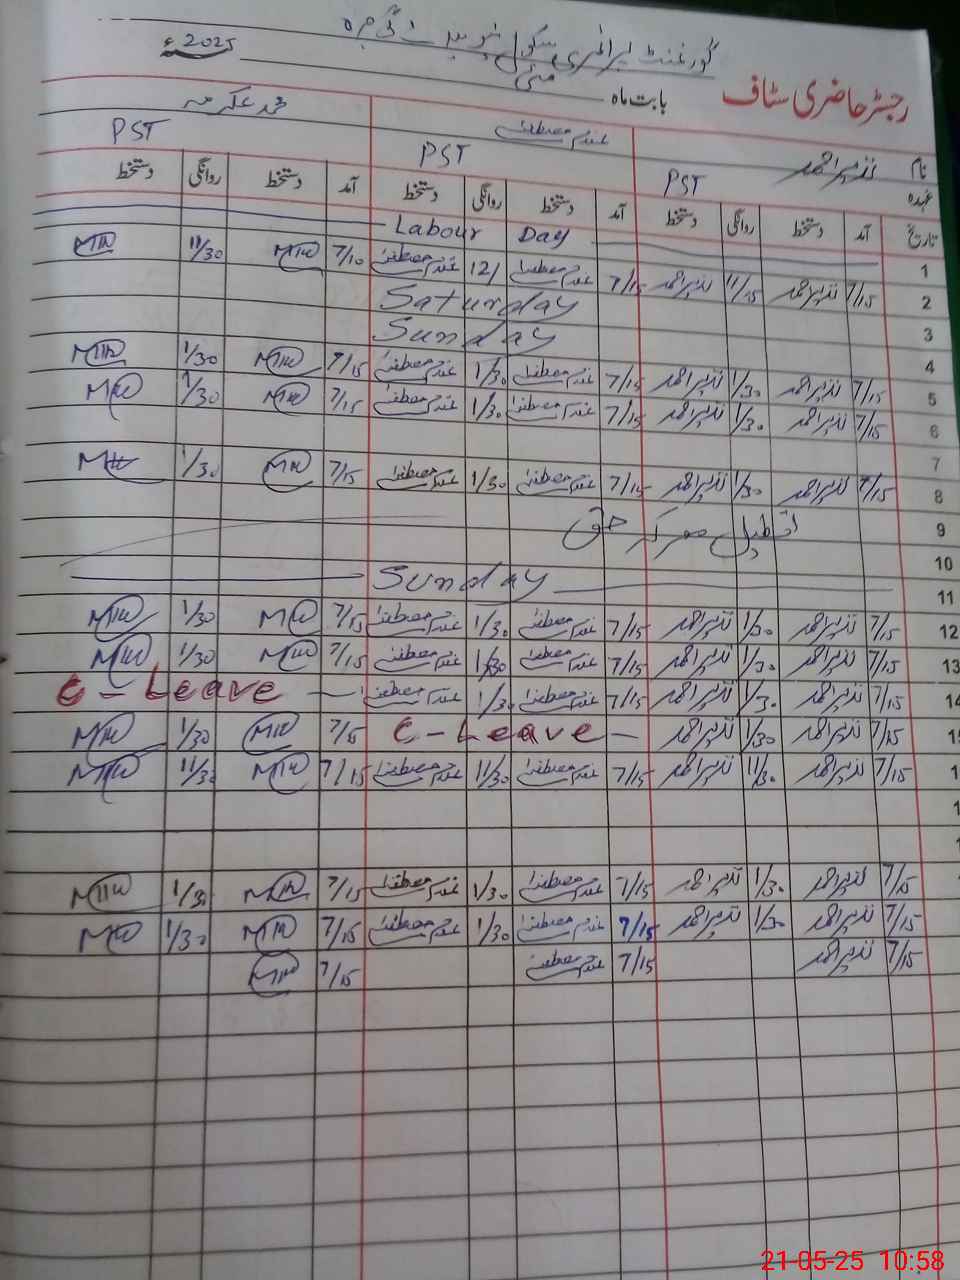 گورنمنٹ پرائمری سکول
رجسٹر حاضری سٹاف بابت ماہ مئی 2025ء
نام نذیر احمد غلام مصطفیٰ محمد عکرمہ
عہدہ PST PST PST
تاریخ آمد دستخط روانگی دستخط آمد دستخط روانگی دستخط آمد دستخط روانگی دستخط
1 Labour Day
2 7/15 نذیر احمد 11/15 نذیر احمد 7/15 غلام مصطفیٰ 12/ غلام مصطفیٰ 7/10 11/30
3 Saturday
4 Sunday
5 7/15 نذیر احمد 1/30 نذیر احمد 7/15 غلام مصطفیٰ 1/30 غلام مصطفیٰ 7/15 1/30
6 7/15 نذیر احمد 1/30 نذیر احمد 7/15 غلام مصطفیٰ 1/30 غلام مصطفیٰ 7/15 1/30
7
8 7/15 نذیر احمد 1/30 نذیر احمد 7/15 غلام مصطفیٰ 1/30 غلام مصطفیٰ 7/15 1/30
9 تعطیل معرکہ حق
10
11 Sunday
12 7/15 نذیر احمد 1/30 نذیر احمد 7/15 غلام مصطفیٰ 1/30 غلام مصطفیٰ 7/15 1/30
13 7/15 نذیر احمد 1/30 نذیر احمد 7/15 غلام مصطفیٰ 1/30 غلام مصطفیٰ 7/15 1/30
14 7/15 نذیر احمد 1/30 نذیر احمد 7/15 غلام مصطفیٰ 1/30 غلام مصطفیٰ C-Leave
7/15 نذیر احمد 1/30 نذیر احمد C-Leave 7/15 1/30
7/15 نذیر احمد 11/30 نذیر احمد 7/15 غلام مصطفیٰ 11/30 غلام مصطفیٰ 7/15 11/30
7/15 نذیر احمد 1/30 نذیر احمد 7/15 غلام مصطفیٰ 1/30 غلام مصطفیٰ 7/15 1/30
7/15 نذیر احمد 1/30 نذیر احمد 7/15 غلام مصطفیٰ 1/30 غلام مصطفیٰ 7/15 1/30
7/15 نذیر احمد 7/15 غلام مصطفیٰ 7/15
21-05-25 10:58